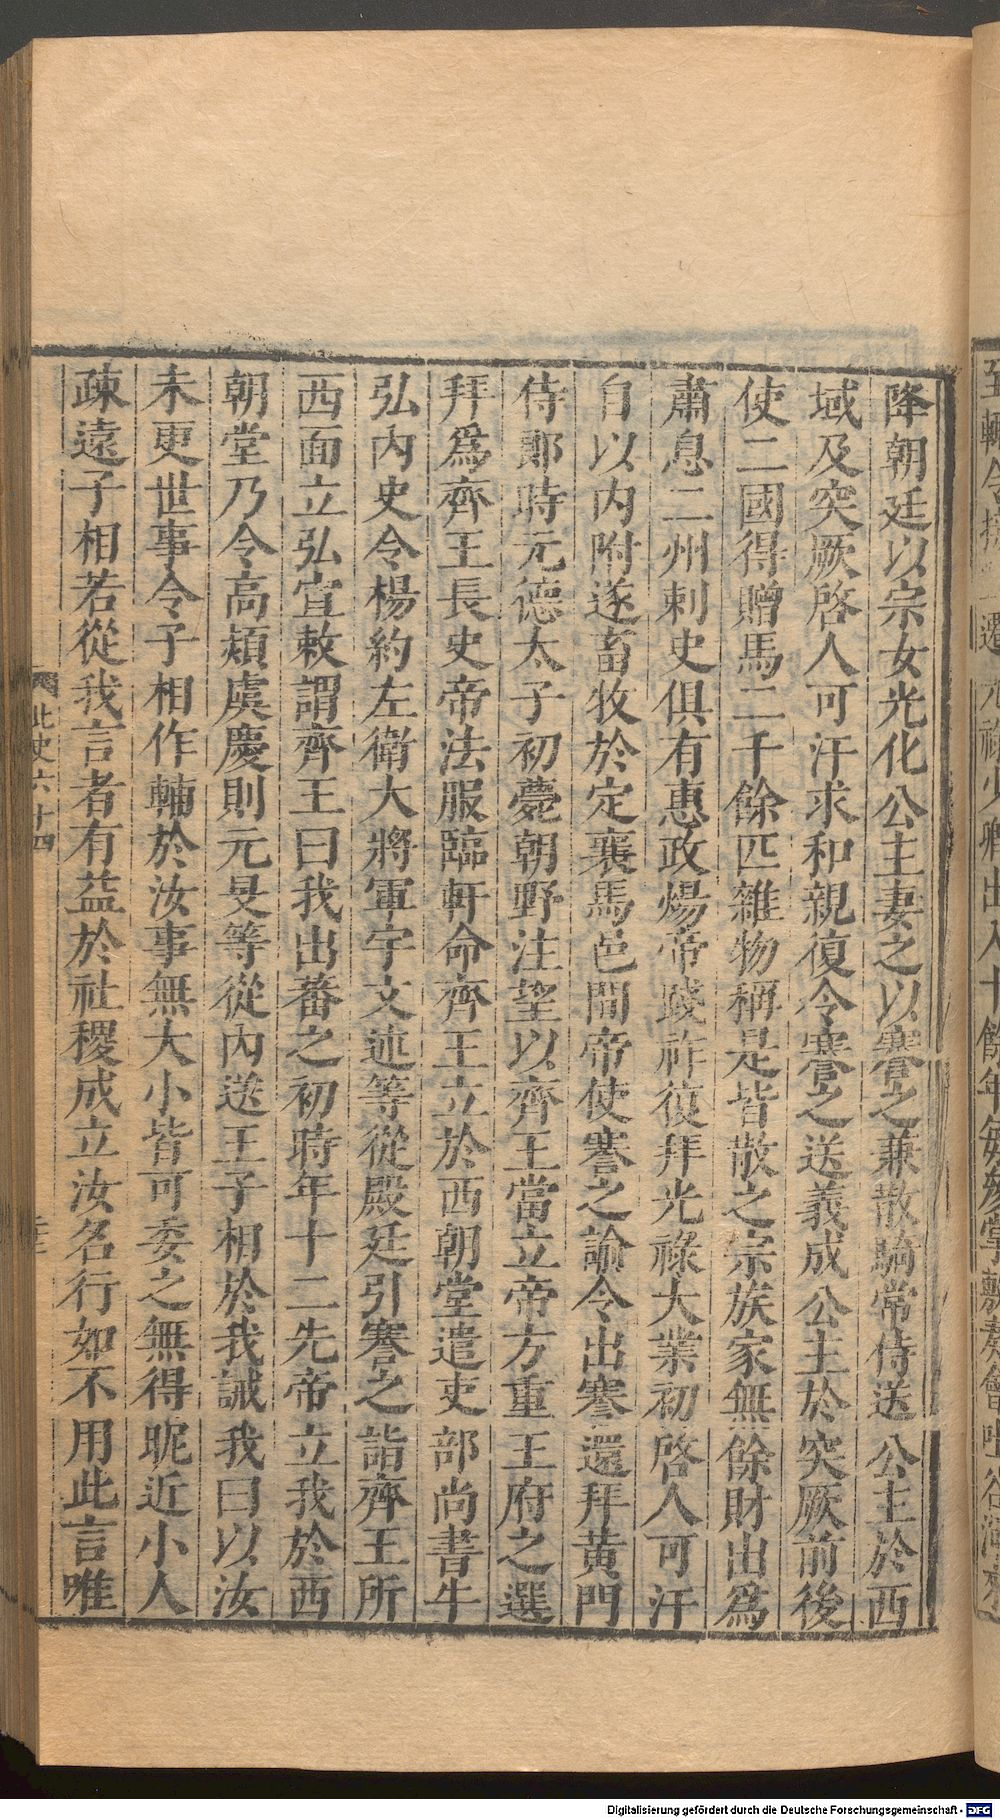 降朝廷以宗女光化公主妻之以謇之兼散騎常侍送公主於西
域及突厥啓人可汗求和親復令謇之送義成公主於突厥前後
使二國得贈馬二千餘匹雜物稱是皆散之宗族家無餘財出爲
肅息二州刺史俱有惠政煬帝踐祚復拜光祿大業初啓人可汗
自以内附遂畜牧於定襄馬邑間帝使謇之諭令出謇還拜黃門
侍郎時元德太子初薨朝野注望以齊王當立帝方重王府之選
拜爲齊王長史帝法服臨軒命齊王立於西朝堂遣吏部尚書牛
弘内史令楊約左衛大將軍宇文述等從殿廷引謇之詣齊王所
西面立弘宣敕謂齊王曰我出蕃之初時年十二先帝立我於西
朝堂乃令高熲虞慶則元旻等從内送王子相於我誡我曰以汝
未更世事令子相作輔於汝事無大小皆可委之無得昵近小人
疎遠子相若從我言者有益於社稷成立汝名行如不用此言唯
北史六十四
Digitalisierung gefördert durch die Deutsche Forschungsgemeinschaft - DFG